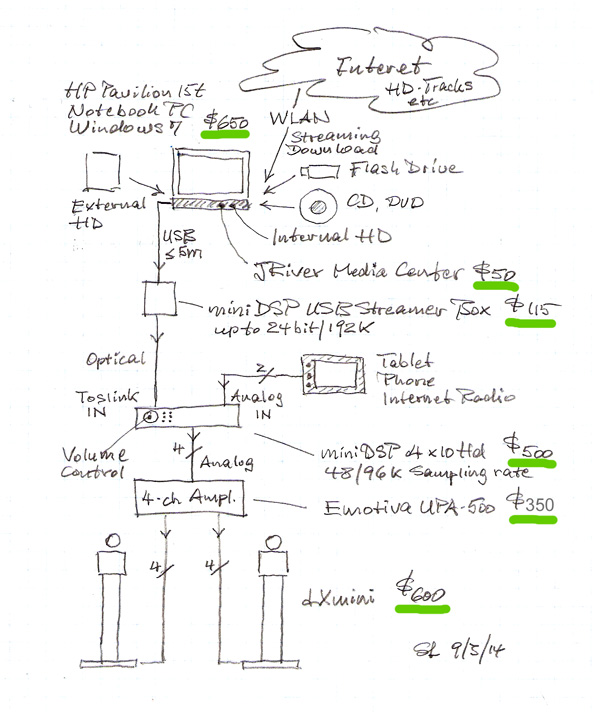 Interet
HD-Tracks
etc
HP Pavilion 15t
Notebook PC
Windows 7 $650
WLAN
Streaming
Download
Flash Drive
External
HD
CD, DVD
Internal HD
USB
≤5m
JRiver Media Center $50
miniDSP USB Streamer Box $115
up to 24bit/192K
Optical
2
Tablet
Phone
Internet Radio
Toslink
IN
Analog
IN
Volume
Control
4
Analog
miniDSP 4x10 Hd $500
48/96K Sampling rate
4-ch Ampl.
Emotiva UPA-500 $350
4
4
LXmini $600
SL 9/5/14